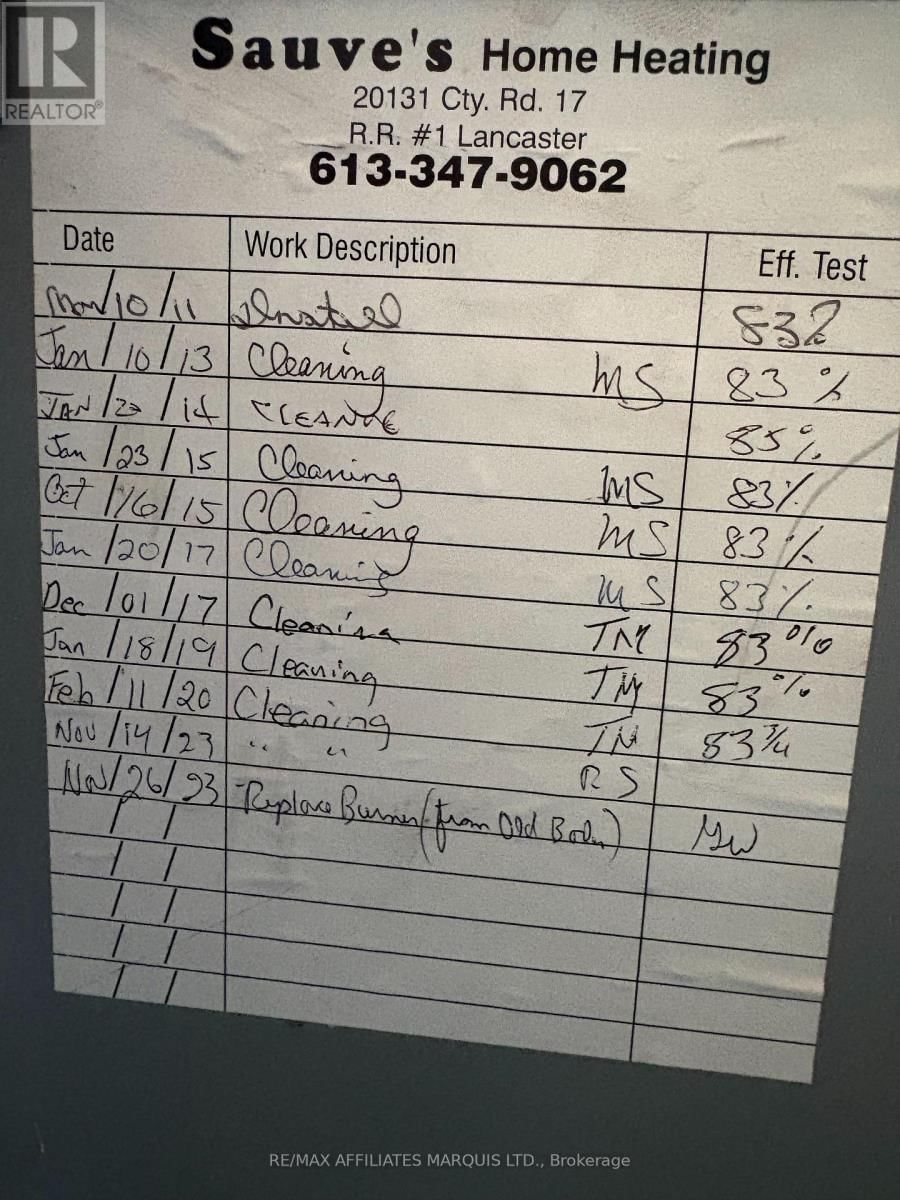 REALTOR®
Sauve's Home Heating
20131 Cty. Rd. 17
R.R. #1 Lancaster
613-347-9062
Date Work Description Eff. Test
/10/11 Install 83%
Jan/10/13 Cleaning MS 83%
JAN/22/14 85%
Jan/23/15 Cleaning MS 83%
Oct/16/15 Cleaning MS 83%
Jan/20/17 Cleaning MS 83%
Dec/01/17 Cleaning TM 83%
Jan/18/19 Cleaning TM 83%
Feb/11/20 Cleaning TM 83 3/4
Nov/14/23 " " RS
Nov/26/23 Replace Burner (from Old ) GW
/ /
/ /
/ /
/ /
/ /
RE/MAX AFFILIATES MARQUIS LTD., Brokerage